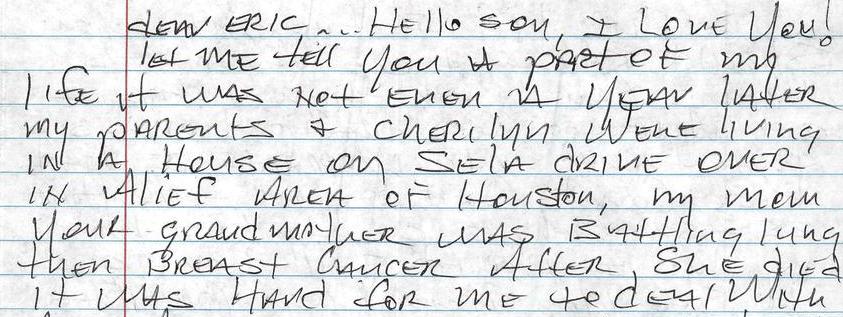 dear Eric... Hello son, I Love You!
let me tell you a part of my
life it was not even a year later
my parents & Cherilyn were living
in a House on Sela drive over
in Alief Area of Houston, my mom
your grandmother was Battling lung
then Breast Cancer After She died
it was Hard for me to deal With